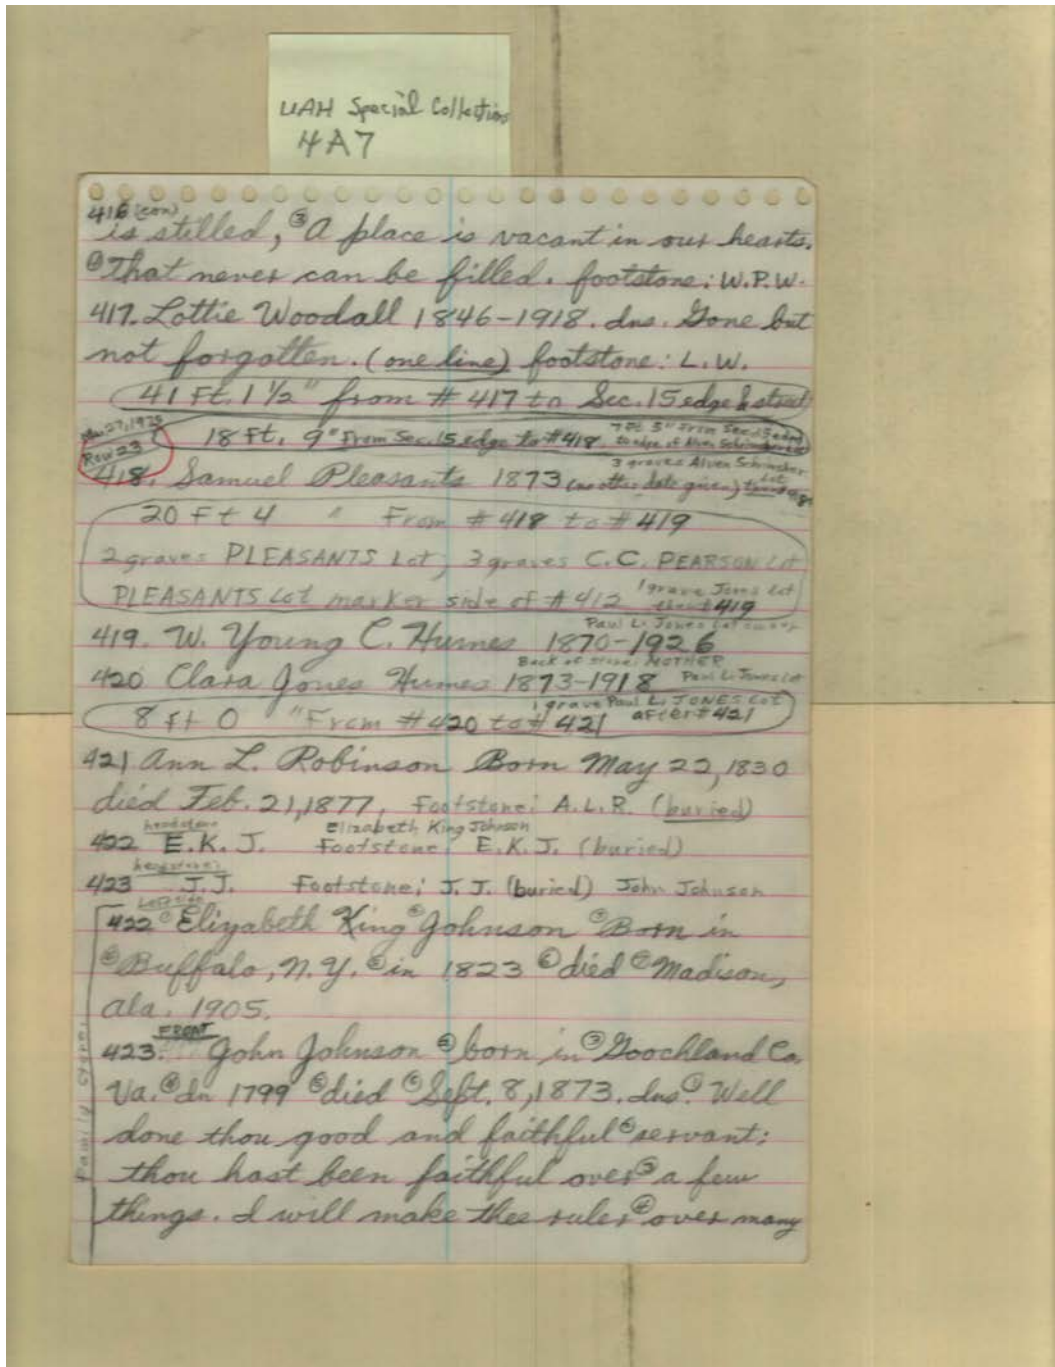 UAH Special Collections
4A7
416 (con)
is stilled, ③ A place is vacant in our hearts.
④ That never can be filled. footstone: W.P.W.
417. Lottie Woodall 1846-1918. Ins. Gone but
not forgotten. (one line) footstone: L.W.
41 Ft. 1 ½" from # 417 to Sec. 15 edge & street
27, 1975
Row 23
18 ft. 9" From Sec. 15 edge to #418
7 ft 5" From Sec. 15 edge
to edge of Alven Schrimsher
3 graves Alven Schrimsher
Lot
418. Samuel Pleasants 1873 (no other date given)
20 Ft 4 " From # 418 to # 419
2 graves PLEASANTS Lot, 3 graves C.C. PEARSON Lot
PLEASANTS Lot marker side of # 412 1 grave Jones Lot
#419
Paul L. Jones Lot
419. W. Young C. Humes 1870-1926
Back of stone: MOTHER
420 Clara Jones Humes 1873-1918 Paul L. Jones Lot
1 grave Paul L. JONES Lot
8 ft 0 " From # 420 to # 421 after # 421
421 Ann L. Robinson Born May 22, 1830
died Feb. 21, 1877, Footstone: A.L.R. (buried)
headstone Elizabeth King Johnson
422 E.K.J. Footstone: E.K.J. (buried)
headstone:
423 J.J. Footstone: J.J. (buried) John Johnson
Left side
422 ① Elizabeth King ② Johnson ③ Born in
④ Buffalo, N.Y. ⑤ in 1823 ⑥ died ⑦ Madison,
Ala. 1905.
FRONT
423. John Johnson ② born in ③ Goochland Co.
Va. ④ In 1799 ⑤ died ⑥ Sept. 8, 1873. Ins. ① Well
done thou good and faithful ② servant:
thou hast been faithful over ③ a few
things. I will make thee ruler ④ over many
Family stone